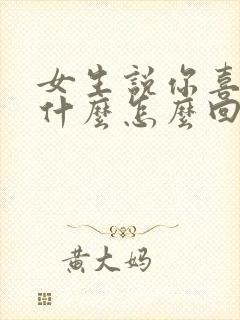 女生説你喜
什麼怎麼回
黃大妈